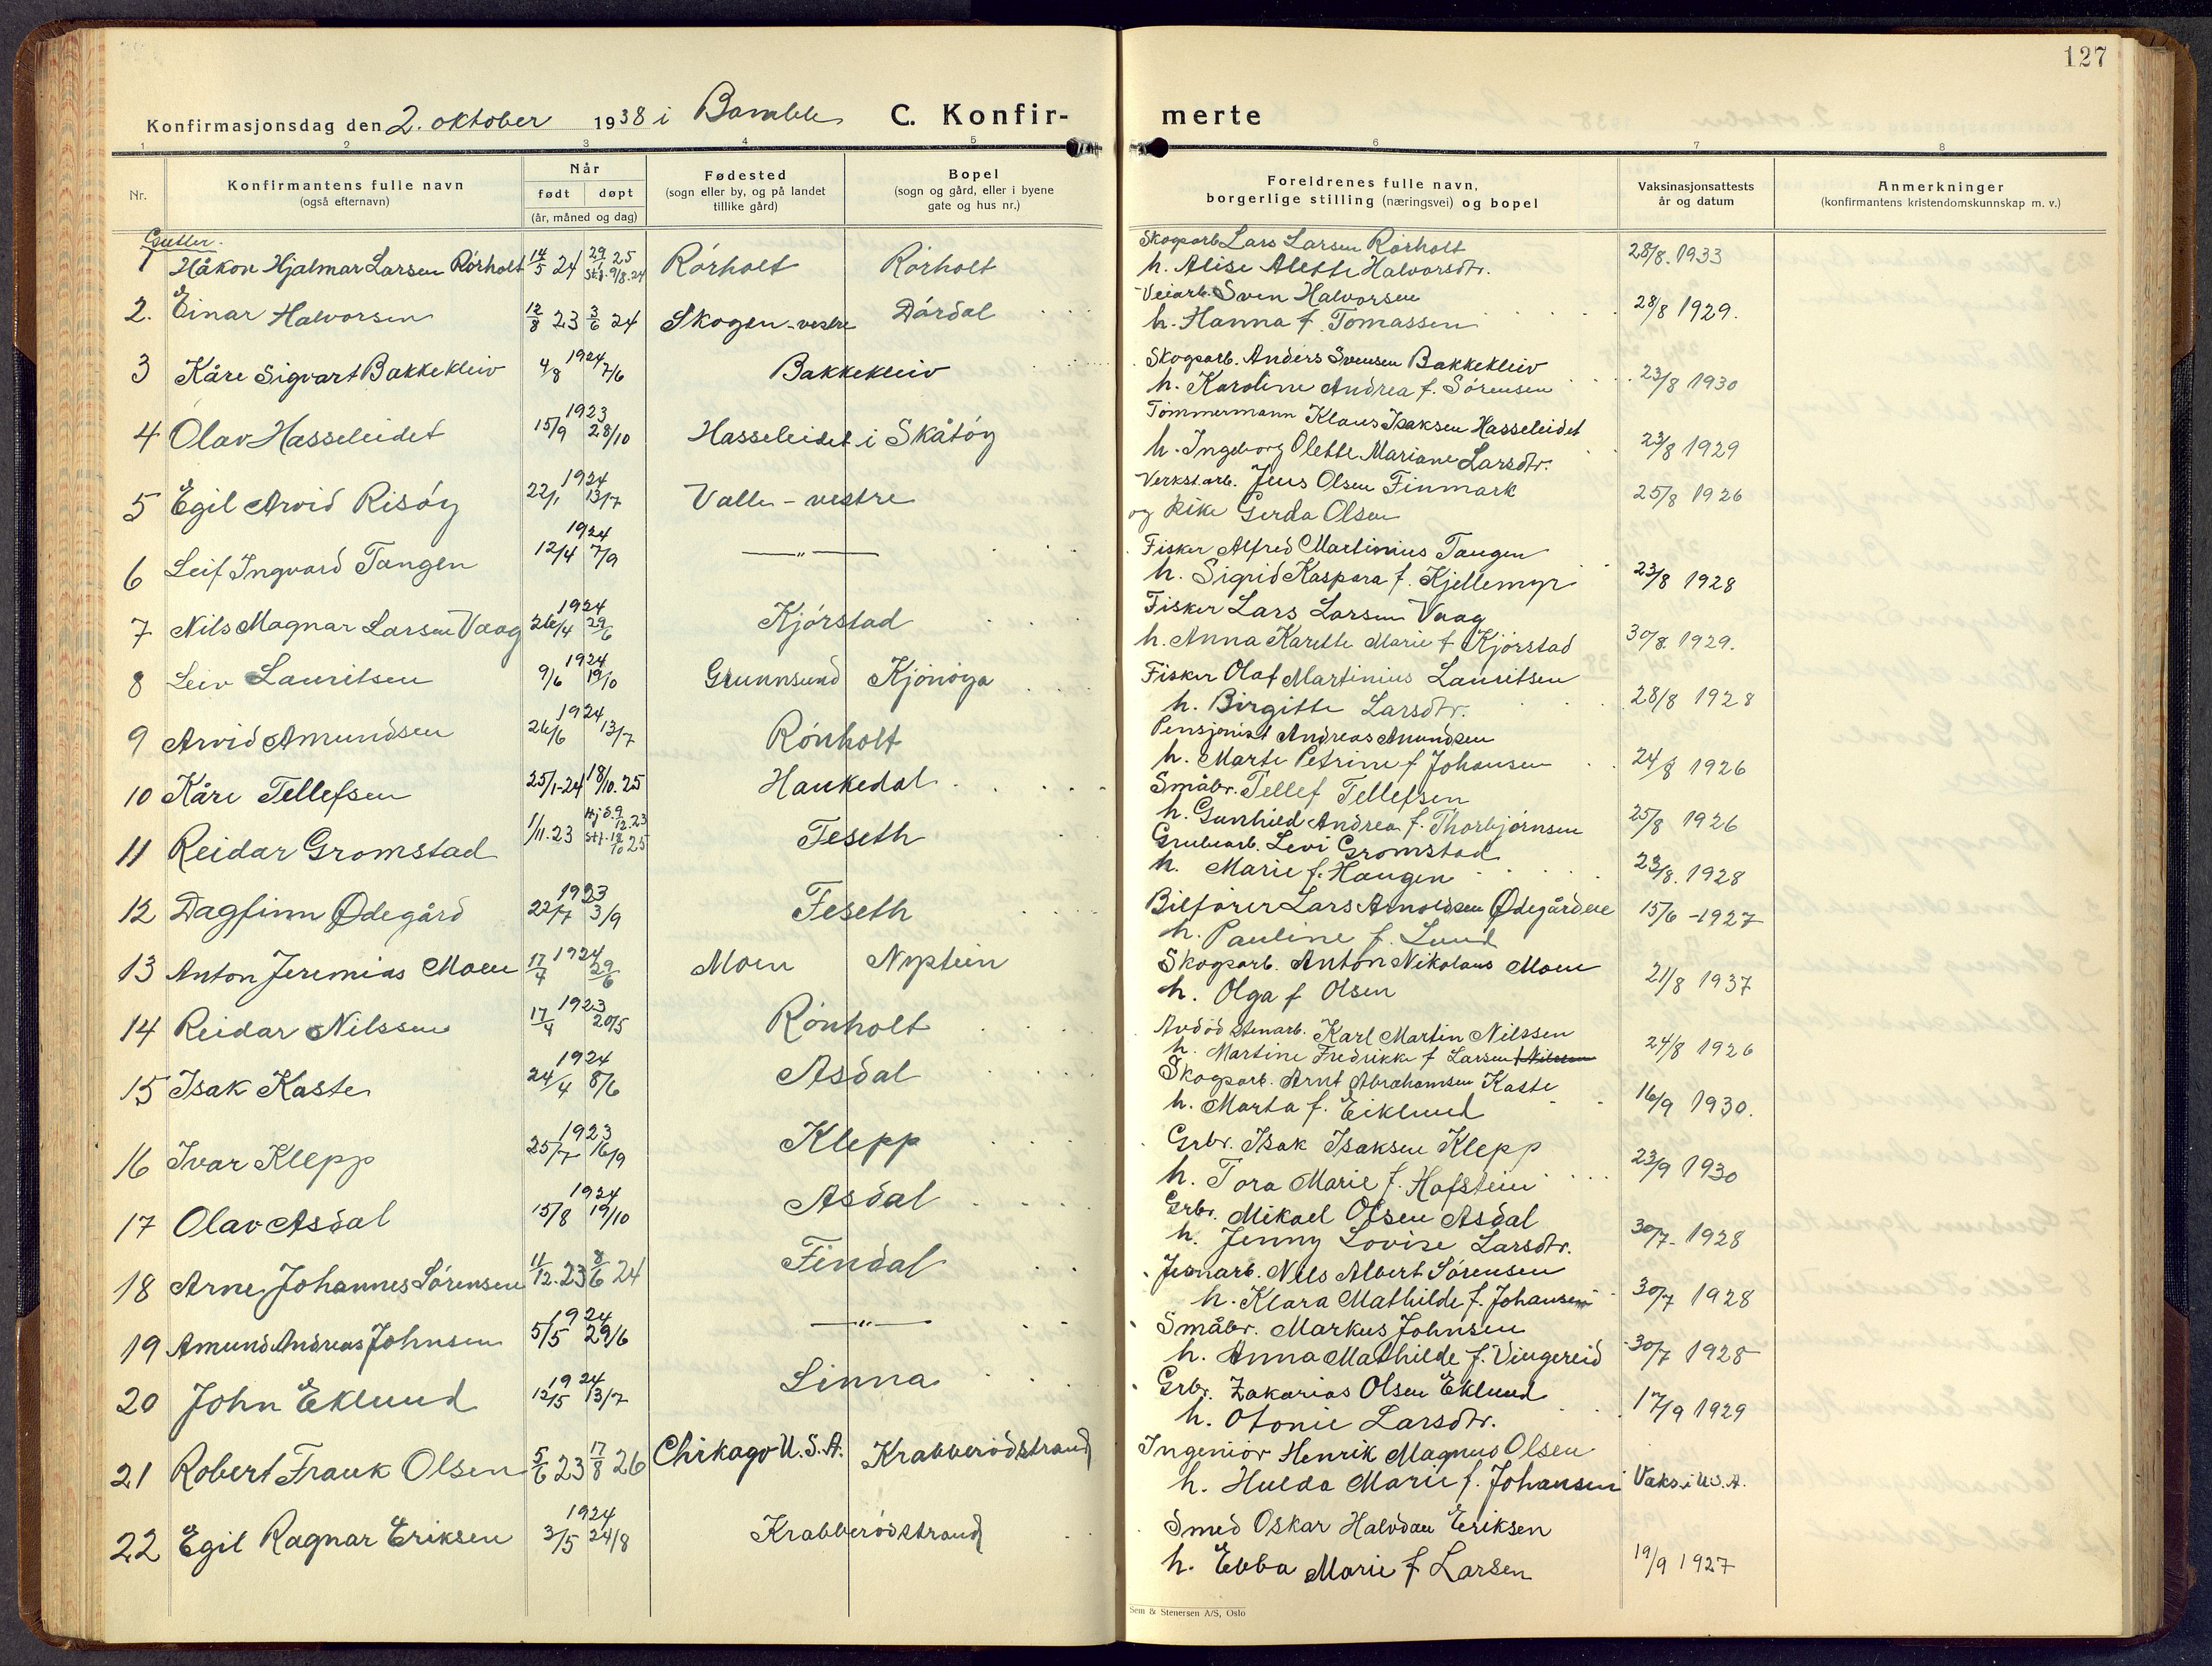 127
Konfirmasjonsdag den 2. oktober 1938 i Bamble C. Konfir- merte
1 2 3 4 5 6 7 8
Nr. Konfirmantens fulle navn (også efternavn) Når født døpt (år, måned og dag) Fødested (sogn eller by, og på landet tillike gård) Bopel (sogn og gård, eller i byene gate og hus nr.) Foreldrenes fulle navn, borgerlige stilling (næringsvei) og bopel Vaksinasjonsattests år og datum Anmerkninger (konfirmantens kristendomskunnskap m. v.)
Gutter.
1 Håkon Hjalmar Larsen Rörholt 14/5 24 29/6 25 Stf. 9/8.24 Rörholt Rörholt Skogsarb. Lars Larsen Rörholt
h. Alise Alette Halvorsdtr. 28/8. 1933
2. Einar Halvorsen 12/8 23 3/6 24 Skogen-vestre Dördal Veiarb. Sven Halvorsen
h. Hanna f. Tomassen 28/8 1929.
3 Kåre Sigvart Bakkekleiv 1924 4/8 7/6 Bakkekleiv Skogsarb. Anders Svensen Bakkekleiv
h. Karoline Andrea f. Sörensen 23/8 1930
4 Olav Hasseleidet 1923 15/9 28/10 Hasseleidet i Skåtöy Tömmermann Klaus Isaksen Hasseleidet
h. Ingeborg Olette Mariane Larsdtr. 23/8 1929
5 Egil Arvid Risöy 1924 22/1 13/7 Valle - vestre Verkst.arb. Jens Olsen Finmark
og Pike Gerda Olsen 25/8 1926
6 Leif Ingvard Tangen 1924 12/4 7/9 —"— Fisker Alfred Martinius Tangen
h. Sigrid Kaspara f. Kjellemyr 23/8 1928
7 Nils Magnar Larsen Vaag 1924 26/4 29/6 Kjörstad Fisker Lars Larsen Vaag
h. Anna Karette Marie f. Kjörstad 30/8. 1929.
8 Leiv Lauritsen 1924 9/6 19/10 Grunnsund Kjönöya Fisker Olaf Martinius Lauritsen
h. Birgitte Larsdtr. 28/8 1928
9 Arvid Amundsen 1924 26/6 13/7 Rönholt Pensjonist Andreas Amundsen
h. Marte Petrine f Johansen 24/8 1926
10 Kåre Tellefsen 25/1-24 18/10.25 Haukedal Småbr. Tellef Tellefsen
h. Gunhild Andrea f. Thorbjörnsen 25/8 1926
11 Reidar Gromstad 1/11.23 Hjd. 9/12.23 Stf. 18/10 25 Feseth Grubearb. Levi Gromstad
h. Marie f. Haugen 23/8. 1928
12 Dagfinn Ødegård 1923 22/7 3/9 Feseth Bilförer Lars Arnoldsen Ødegårdene
h. Pauline f. Lund 15/6 -1927
13 Anton Jeremias Moen 17/4 1924 29/6 Moen Nystein Skogsarb. Anton Nikolaus Moen
h. Olga f Olsen 21/8 1937
14 Reidar Nilssen 1923 17/4 20/5 Rönholt Avdöd Stenarb. Karl Martin Nilssen
h. Martine Fredrikke f Larsen f Nilssen 24/8 1926
15 Isak Kaste 1924 24/4 8/6 Asdal Skogsarb. Arnt Abrahamsen Kaste
h. Marta f. Eiklund 16/9 1930.
16 Ivar Klepp 1923 25/7 16/9 Klepp Grbr. Isak Isaksen Klepp
h. Tora Marie f. Hafstein 23/9 1930
17 Olav Asdal 1924 15/8 19/10 Asdal Grbr. Mikael Olsen Asdal
h. Jenny Lovise Larsdtr. 30/7- 1928
18 Arne Johannes Sörensen 11/12.23 8/6 24 Findal Jernarb. Nils Albert Sörensen
h. Klara Mathilde f. Johansen 30/7 1928
19 Amund Andreas Johnsen 1924 5/5 29/6 —"— Småbr. Markus Johnsen
h. Anna Mathilde f. Vingereid 30/7 1928
20 John Eklund 1924 12/5 13/7 Linna Grbr. Zakarias Olsen Eklund
h. Otonie Larsdtr. 17/9 1929
21 Robert Frank Olsen 5/6 23 17/8 26 Chikago U.S.A. Krabberödstrand Ingeniör Henrik Magnus Olsen
h. Hulda Marie f. Johansen Vaks. i U.S.A.
22 Egil Ragnar Eriksen 1924 3/5 24/8 Krabberödstrand Smed Oskar Halvdan Eriksen
h. Ebba Marie f Larsen 19/9 1927
Sem & Stenersen A/S, Oslo